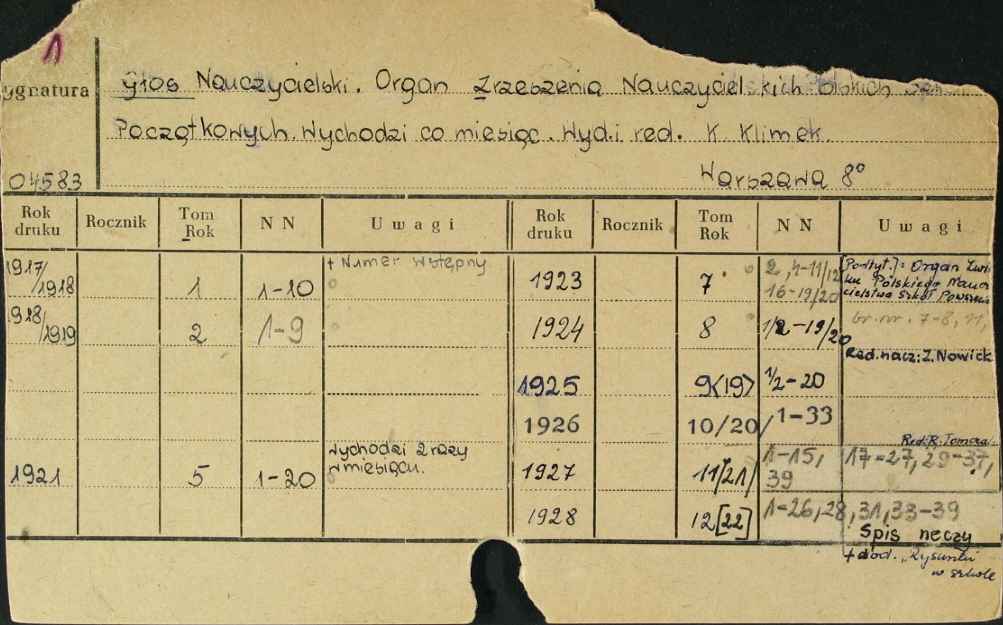 1
ygnatura
Głos Nauczycielski. Organ Zrzeszenia Nauczycielskich Polskich
Początkowych. Wychodzi co miesiąc. Wyd. i red. K. Klimek.
04583 Warszawa 8°
Rok druku Rocznik Tom Rok NN Uwagi Rok druku Rocznik Tom Rok NN Uwagi
1917/1918 1 1-10 + Numer wstępny
1918/1919 2 1-9
1921 5 1-20 Wychodzi 2 razy w miesiącu.
1923 7 2, 4-11/12 16-19/20 [Podtyt.]: Organ Związ
ku Polskiego Nauczy
cielstwa Szkół Powszech
1924 8 1/2-19/20 br. nr. 7-8, 11,
Red. nacz: Z. Nowick
1925 9<19> 1/2-20
1926 10/20/ 1-33
Red. R. Tomcza
1927 11/21/ 1-15, 17-27, 29-37, 39
1928 12[22] 1-26, 28, 31, 33-39
Spis rzeczy
+ dod. „Rysunki
w szkole